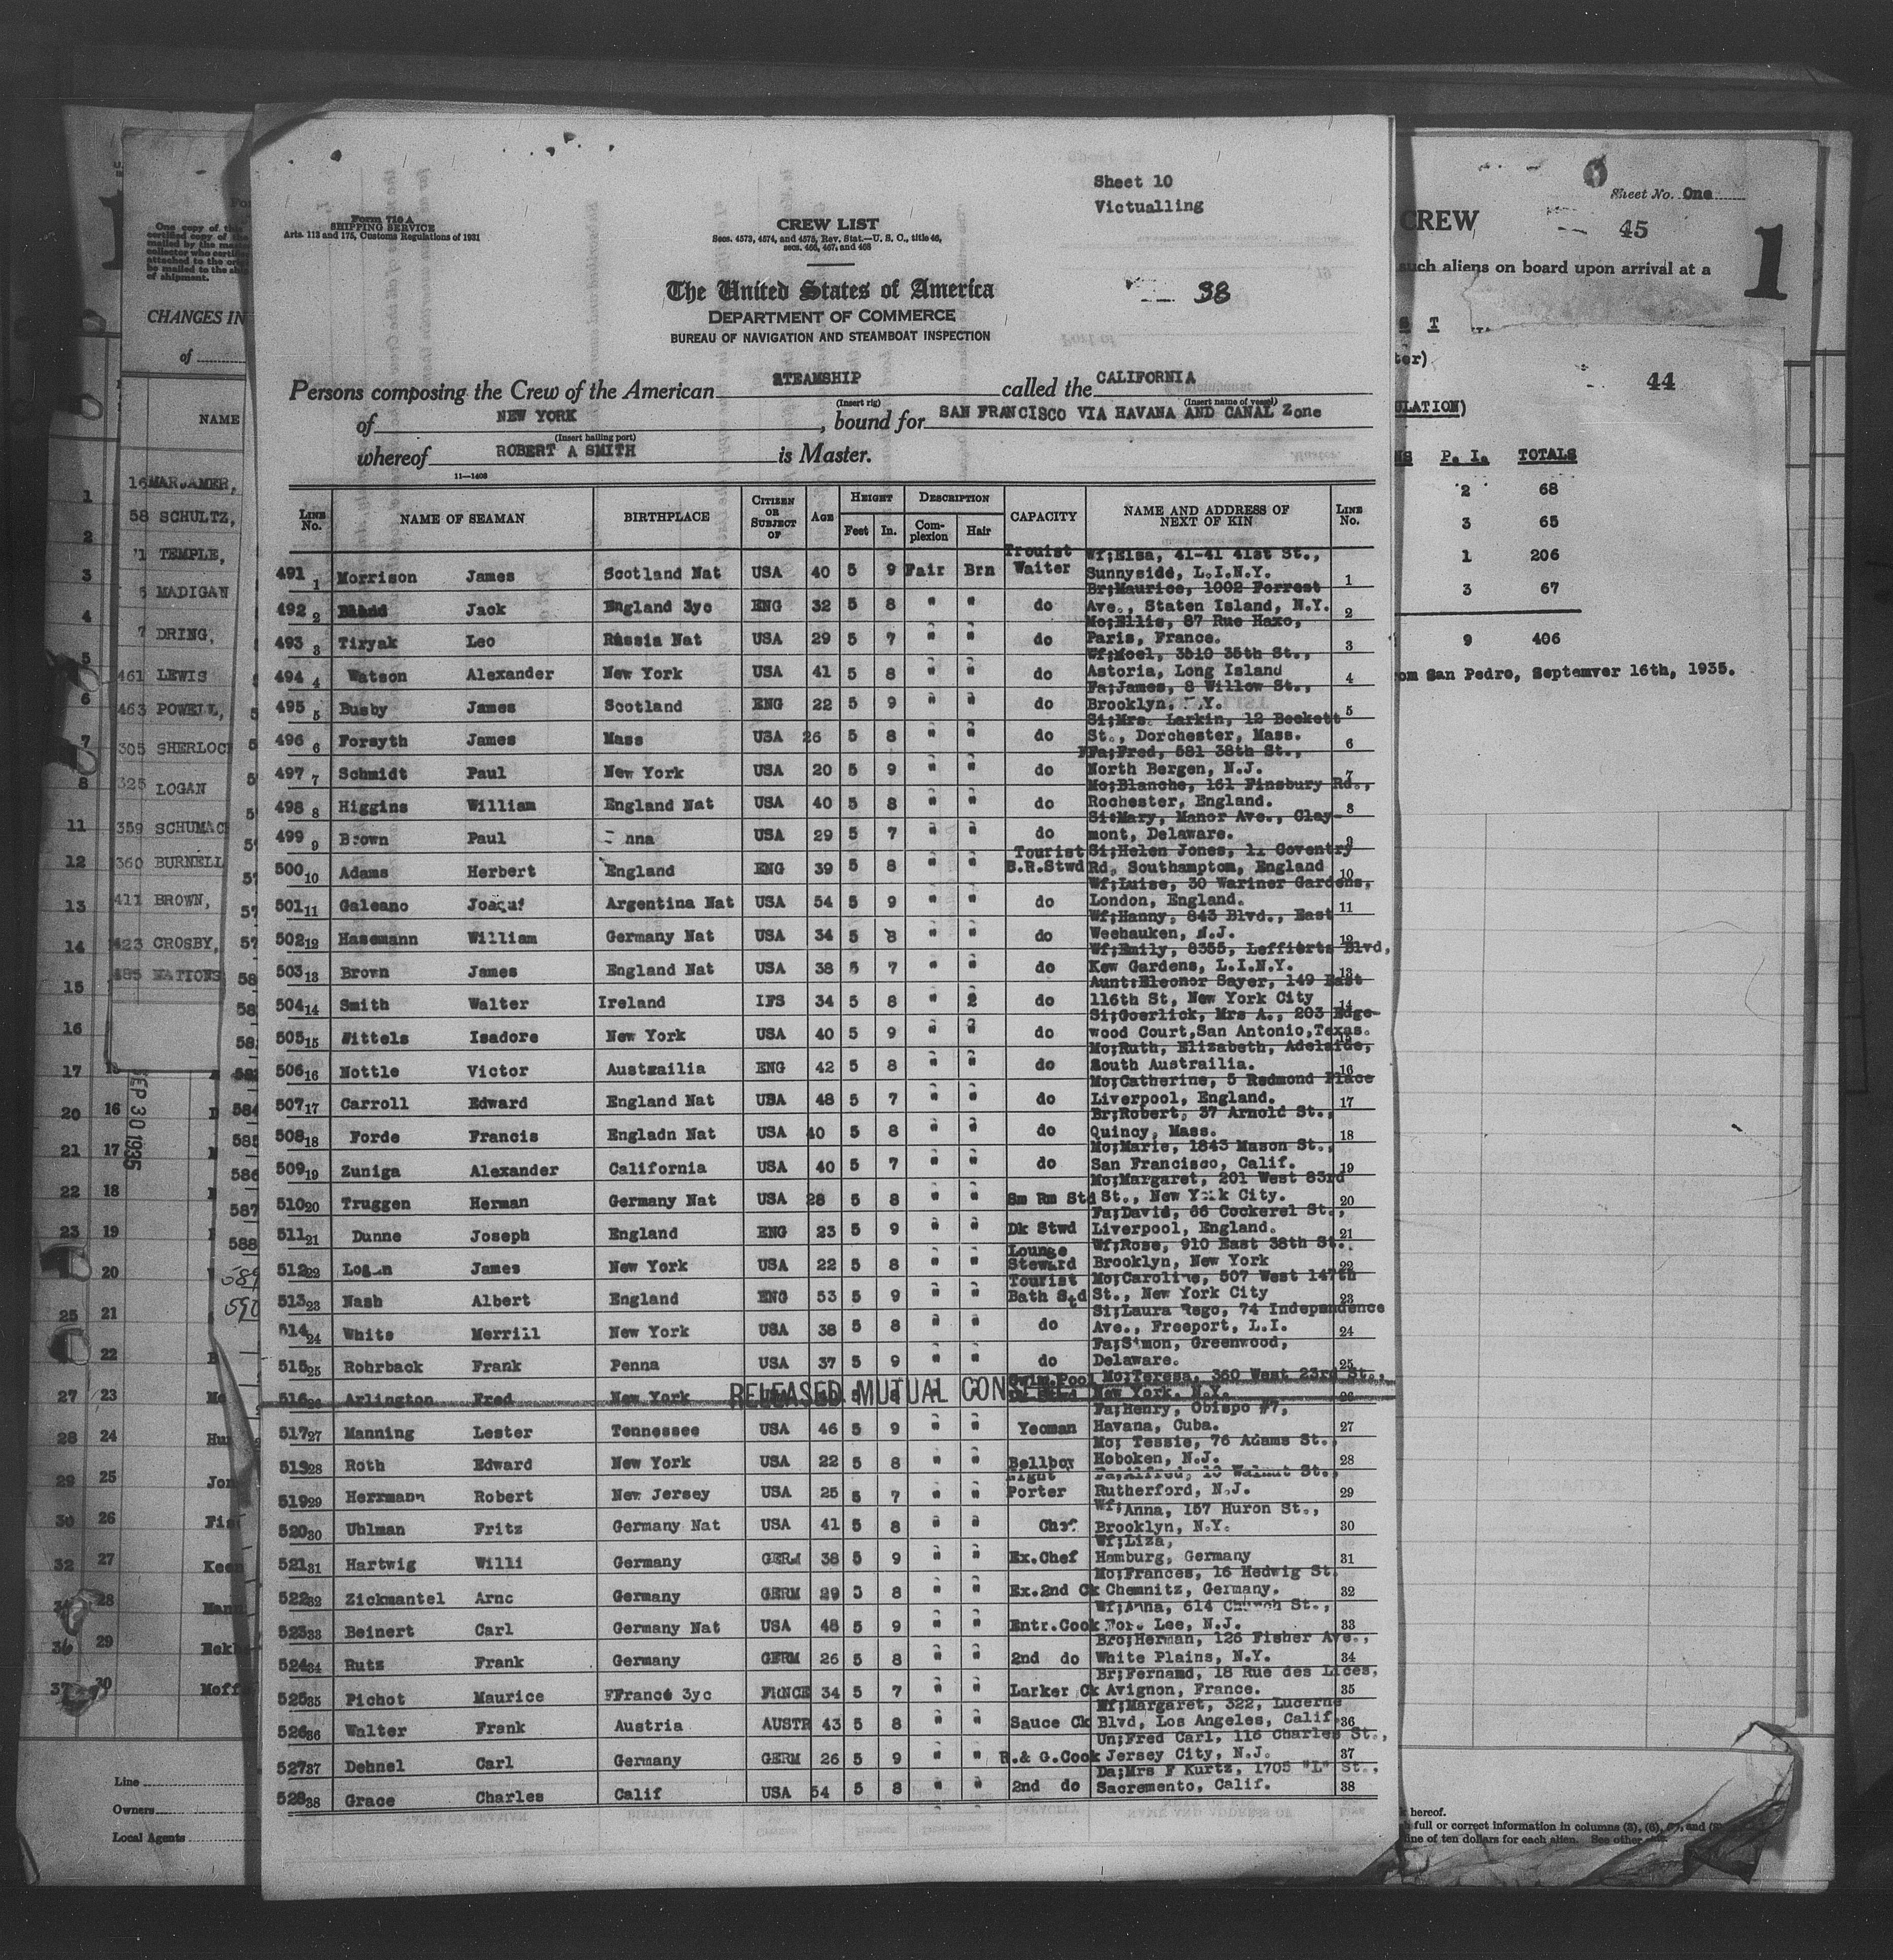 Sheet 10
Victualling
Form 710 A
SHIPPING SERVICE
Arts. 113 and 175, Customs Regulations of 1931
CREW LIST
Secs. 4573, 4574, and 4575, Rev. Stat.—U. S. C., title 46,
secs. 466, 467, and 468
38
The United States of America
DEPARTMENT OF COMMERCE
BUREAU OF NAVIGATION AND STEAMBOAT INSPECTION
Persons composing the Crew of the American STEAMSHIP called the CALIFORNIA
(Insert rig) (Insert name of vessel)
of NEW YORK, bound for SAN FRANCISCO VIA HAVANA AND CANAL Zone
(Insert hailing port)
whereof ROBERT A SMITH is Master.
11—1408
LINE No. NAME OF SEAMAN BIRTHPLACE CITIZEN OR SUBJECT OF AGE HEIGHT Feet In. DESCRIPTION Complexion Hair CAPACITY NAME AND ADDRESS OF NEXT OF KIN LINE No.
491 1 Morrison James Scotland Nat USA 40 5 9 Fair Brn Trouist Waiter Wf;Elsa, 41-41 41st St., Sunnyside, L.I.N.Y. 1
492 2 Jack England 3yc ENG 32 5 8 " " do Br;Maurice, 1002 Forrest Ave., Staten Island, N.Y. 2
493 3 Tiryak Leo Russia Nat USA 29 5 7 " " do Mo;Ellis, 87 Rue Haxo, Paris, France. 3
494 4 Watson Alexander New York USA 41 5 8 " " do Wf;Moel, 3510 35th St., Astoria, Long Island 4
495 5 Busby James Scotland ENG 22 5 9 " " do Fa;James, 8 Willow St., Brooklyn, .Y. 5
496 6 Forsyth James Mass USA 26 5 8 " " do Si;Mrs. Larkin, 12 Beckett St., Dorchester, Mass. 6
497 7 Schmidt Paul New York USA 20 5 9 " " do Fa;Fred, 581 38th St., North Bergen, N.J. 7
498 8 Higgins William England Nat USA 40 5 8 " " do Mo;Blanche, 161 Finsbury Rd., Rochester, England. 8
499 9 Brown Paul nna USA 29 5 7 " " do Si:Mary, Manor Ave., Clay-mont, Delaware. 9
500 10 Adams Herbert England ENG 39 5 8 " " Tourist B.R.Stwd Si;Helen Jones, 11 Coventry Rd, Southamptom, England 10
501 11 Galeano Joaqui Argentina Nat USA 54 5 9 " " do Wf;Luise, 30 Wariner Gardens, London, England. 11
502 12 Hasemann William Germany Nat USA 34 5 8 " " do Wf;Hanny, 843 Blvd., East Weehauken, N.J. 12
503 13 Brown James England Nat USA 38 5 7 " " do Wf;Emily, 8355, Leffierts Blvd, Kew Gardens, L.I.N.Y. 13
504 14 Smith Walter Ireland IFS 34 5 8 " " do Aunt:Eleonor Sayer, 149 East 116th St, New York City 14
505 15 Wittels Isadore New York USA 40 5 9 " " do Si;Goerlick, Mrs A., 203 Edge-wood Court,San Antonio,Texas. 15
506 16 Nottle Victor Austrailia ENG 42 5 8 " " do Mo;Ruth, Elizabeth, Adelaide, South Austrailia. 16
507 17 Carroll Edward England Nat USA 48 5 7 " " do Mo;Catherine, 5 Redmond Place Liverpool, England. 17
508 18 Forde Francis Engladn Nat USA 40 5 8 " " do Br;Robert, 37 Arnold St., Quincy, Mass. 18
509 19 Zuniga Alexander California USA 40 5 7 " " do Mo;Marie, 1843 Mason St., San Francisco, Calif. 19
510 20 Truggen Herman Germany Nat USA 28 5 8 " " Sm Rm Std Mo;Margaret, 201 West 83rd St., New York City. 20
511 21 Dunne Joseph England ENG 23 5 9 " " Dk Stwd Fa;David, 66 Cockerel St., Liverpool, England. 21
512 22 Logan James New York USA 22 5 8 " " Lounge Steward Wf;Rose, 910 East 38th St. Brooklyn, New York 22
513 23 Nash Albert England ENG 53 5 9 " " Tourist Bath Std Mo;Caroline, 507 West 147th St., New York City 23
514 24 White Merrill New York USA 38 5 8 " " do Si;Laura Rego, 74 Independence Ave., Freeport, L.I. 24
515 25 Rohrback Frank Penna USA 37 5 9 " " do Fa;Simon, Greenwood, Delaware. 25
516 26 Arlington Fred New York RELEASED MUTUAL CONSENT Swim.Pool Mo;Teresa, 360 West 23rd St., New York, N.Y. 26
517 27 Manning Lester Tennessee USA 46 5 9 " " Yeoman Fa;Henry, Obispo #7, Havana, Cuba. 27
518 28 Roth Edward New York USA 22 5 8 " " Bellboy Mo; Tessie, 76 Adams St., Hoboken, N.J. 28
519 29 Herrmann Robert New Jersey USA 25 5 7 " " Night Porter Fa;Alfred, 10 Walnut St., Rutherford, N.J. 29
520 30 Uhlman Fritz Germany Nat USA 41 5 8 " " Chef Wf;Anna, 157 Huron St., Brooklyn, N.Y. 30
521 31 Hartwig Willi Germany GERM 38 5 9 " " Ex.Chef Wf;Liza, Hamburg, Germany 31
522 32 Zickmantel Arno Germany GERM 29 5 8 " " Ex.2nd Ck Mo;Frances, 16 Hedwig St. Chemnitz, Germany. 32
523 33 Beinert Carl Germany Nat USA 48 5 9 " " Entr.Cook Wf;Anna, 614 Church St., Fort Lee, N.J. 33
524 34 Rutz Frank Germany GERM 26 5 8 " " 2nd do Bro;Herman, 126 Fisher Ave., White Plains, N.Y. 34
525 35 Pichot Maurice FFrance 3yc FRNCE 34 5 7 " " Larker Ck Br;Fernand, 18 Rue des Lices, Avignon, France. 35
526 36 Walter Frank Austria AUSTR 43 5 8 " " Sauce Ck Wf;Margaret, 322, Lucerne Blvd, Los Angeles, Calif 36
527 37 Dehnel Carl Germany GERM 26 5 9 " " R.& G.Cook Un;Fred Carl, 116 Charles St., Jersey City, N.J. 37
528 38 Grace Charles Calif USA 54 5 8 " " 2nd do Da;Mrs F Kurtz, 1705 "L" St., Sacremento, Calif. 38
One copy of this
certified copy of the
CHANGES IN
of
NAME
16 MARJAMER,
58 SCHULTZ,
71 TEMPLE,
5 MADIGAN
7 DRING,
461 LEWIS
463 POWELL,
305 SHERLOC
325 LOGAN
359 SCHUMAC
360 BURNELL
411 BROWN,
423 CROSBY,
485 NATIONS
SEP 30 1935
Line
Owners
Local Agents
Sheet No. One
CREW
45
1
such aliens on board upon arrival at a
S T
44
ULATION)
P. I. TOTALS
2 68
3 65
1 206
3 67
9 406
om San Pedro, Septemver 16th, 1935.
hereof.
full or correct information in columns (3), (6), (7), and (8)
fine of ten dollars for each alien. See other